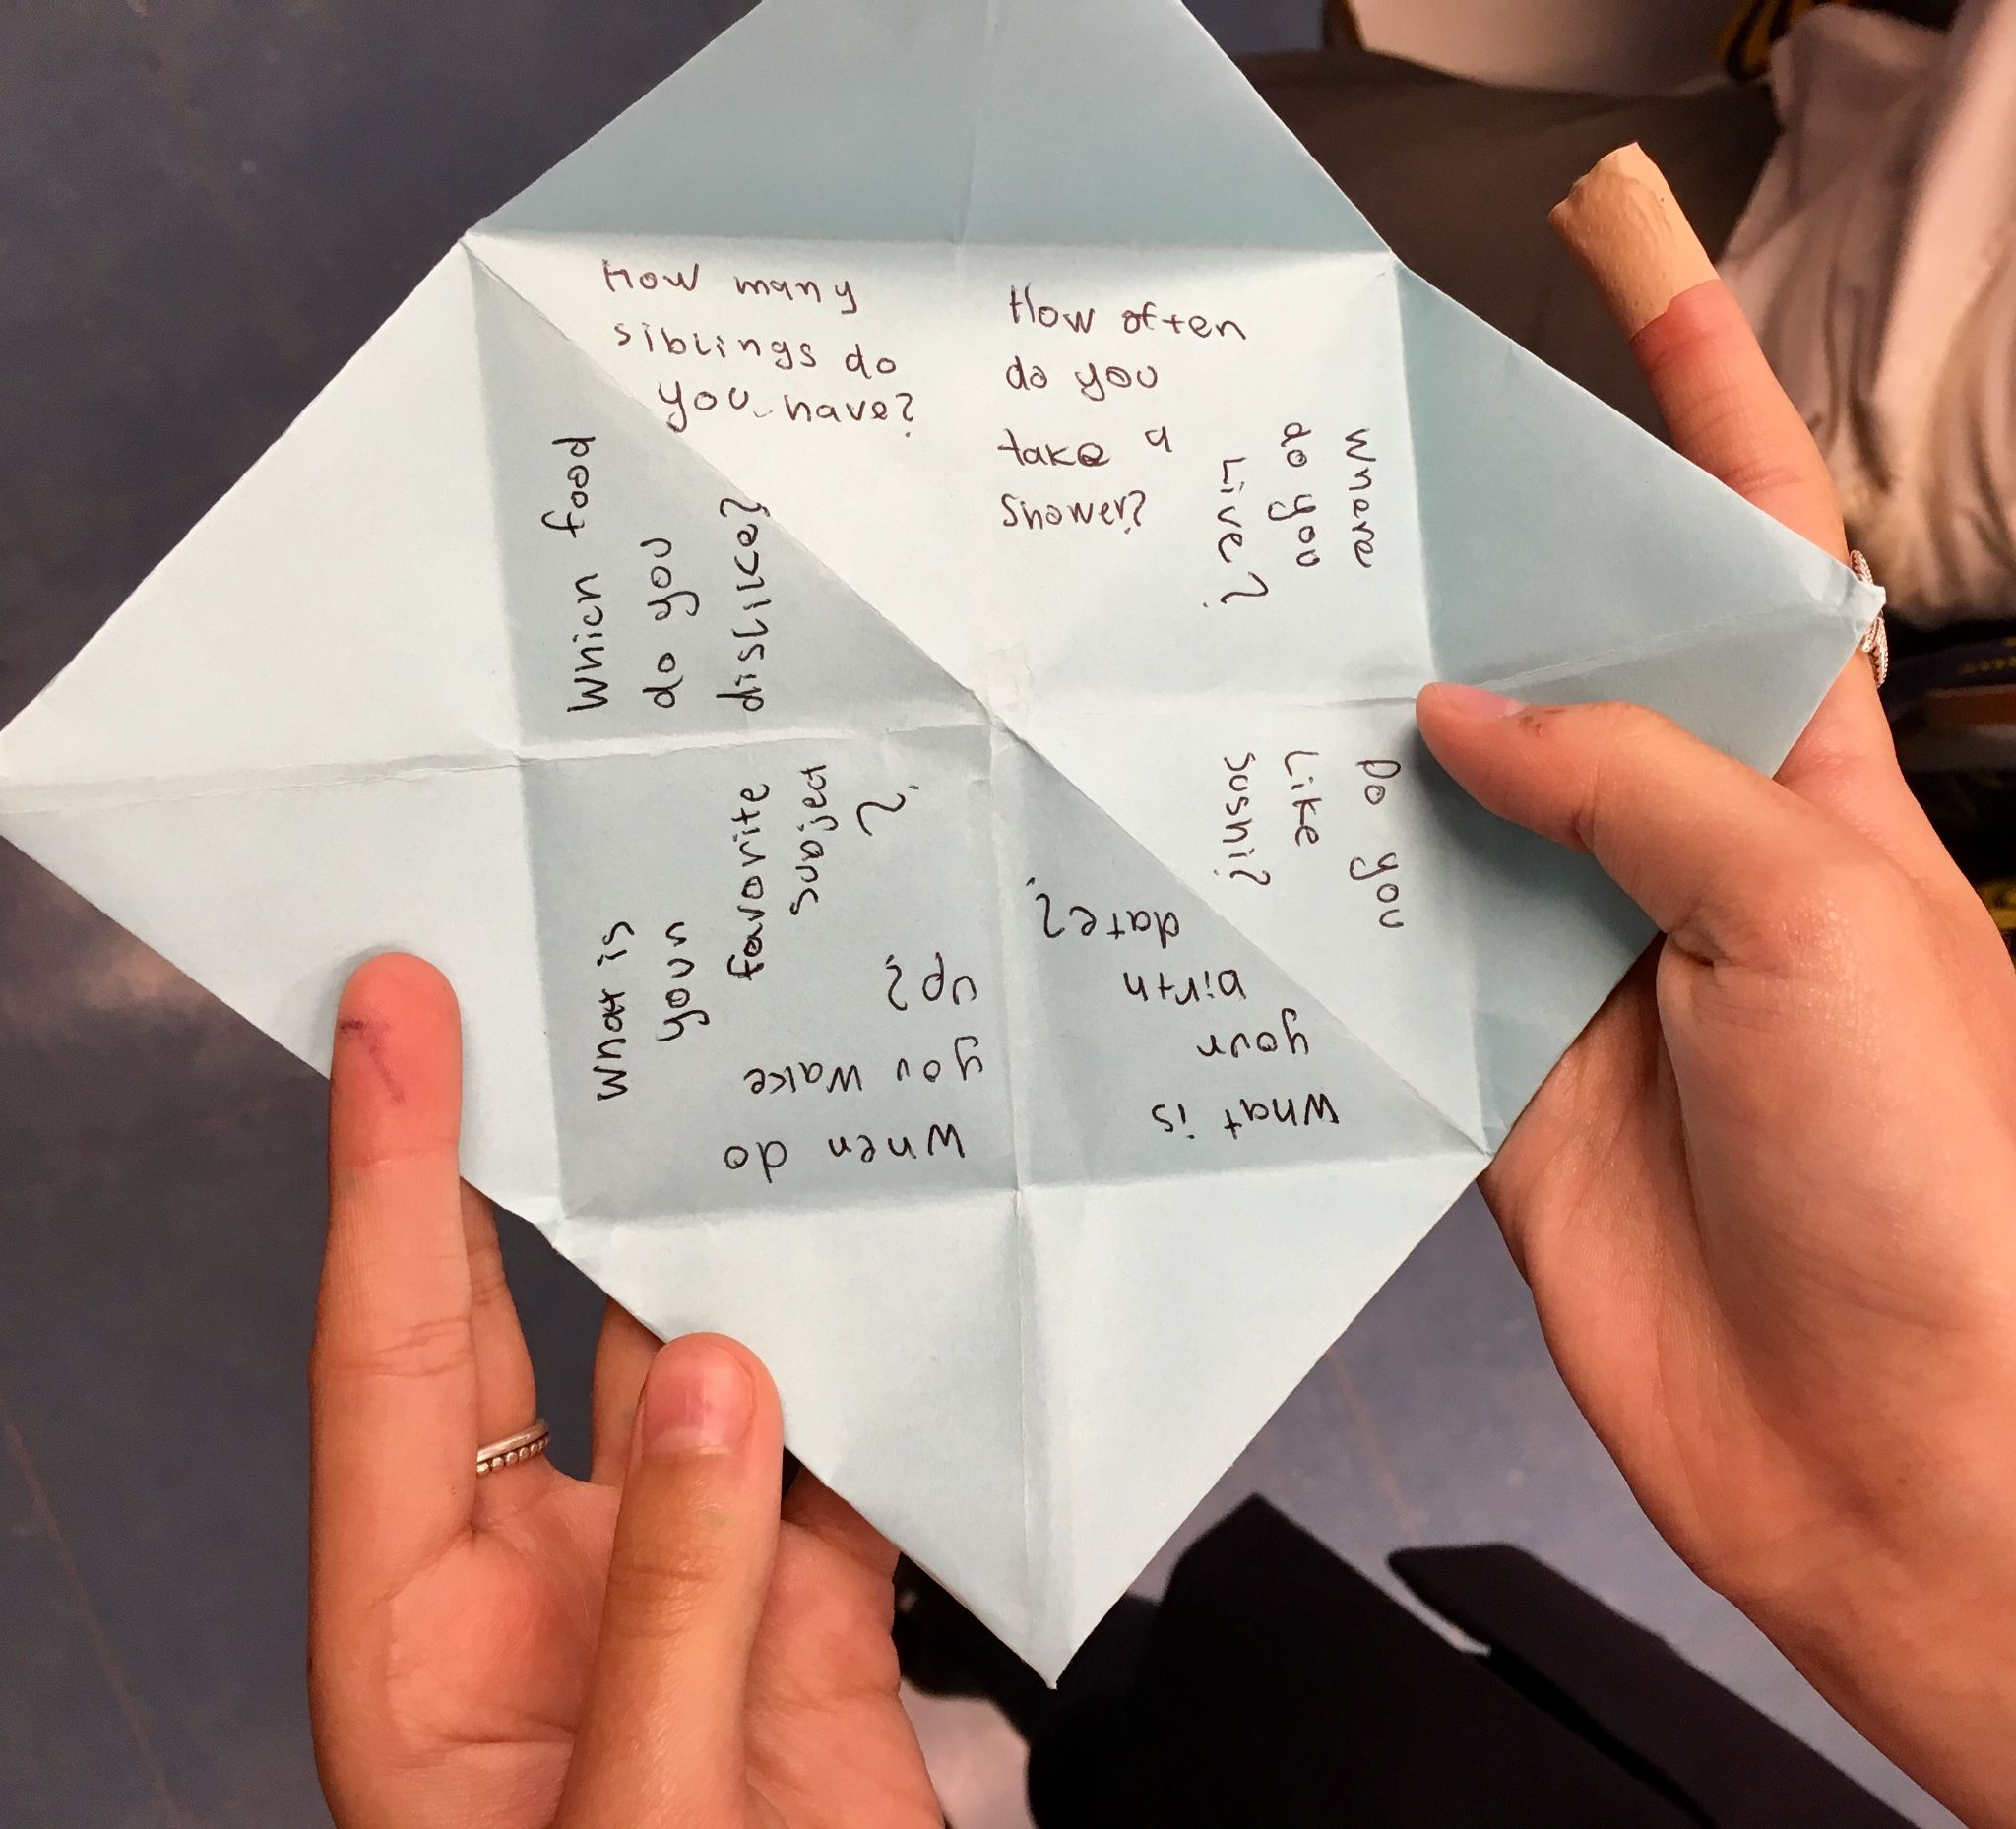 How many
siblings do
you have?
How often
do you
take a
shower?
Where
do you
Live?
Do you
Like
sushi?
What is
your
birth
date?
When do
you wake
up?
What is
your
favorite
subject
?
Which food
do you
dislike?